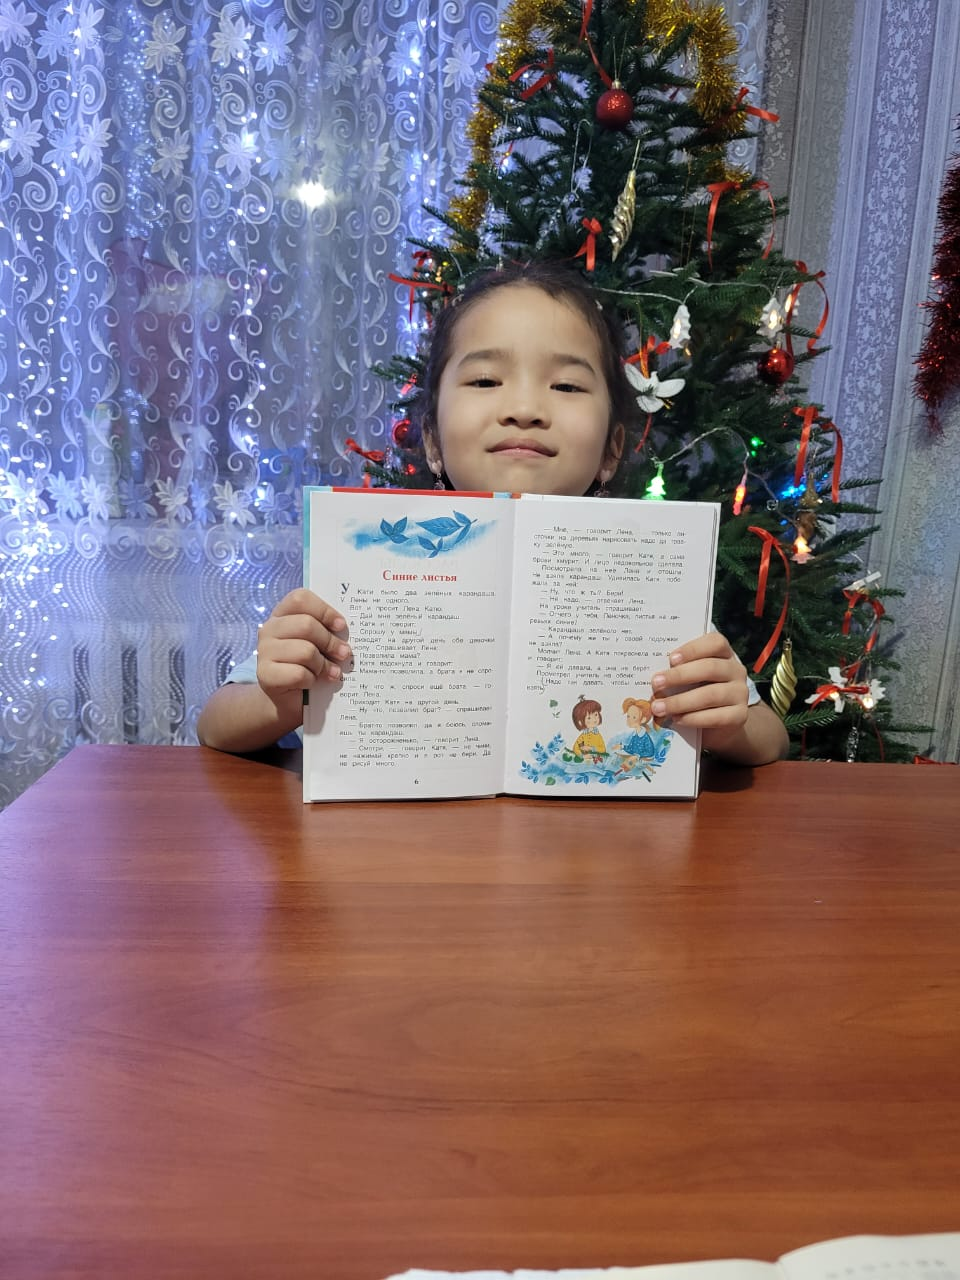 Синие листья
У Кати было два зелёных карандаша.
У Лены ни одного.
Вот и просит Лена Катю:
— Дай мне зелёный карандаш.
А Катя и говорит:
— Спрошу у мамы.
Приходят на другой день обе девочки
школу. Спрашивает Лена:
— Позволила мама?
А Катя вздохнула и говорит:
— Мама-то позволила, а брата я не спро-
сила.
— Ну что ж, спроси ещё брата — го-
ворит Лена.
Приходит Катя на другой день.
— Ну что, позволил брат? — спрашивает
Лена.
— Брат-то позволил, да я боюсь, слома-
ешь ты карандаш.
— Я осторожненько, — говорит Лена.
— Смотри, — говорит Катя, — не чини,
не нажимай крепко и в рот не бери. Да
не рисуй много.
6
— Мне, — говорит Лена, — только ли-
сточки на деревьях нарисовать надо да трав-
ку зелёную.
— Это много, — говорит Катя, а сама
брови хмурит. И лицо недовольное сделала.
Посмотрела на неё Лена и отошла.
Не взяла карандаш. Удивилась Катя, побе-
жала за ней:
— Ну, что ж ты? Бери!
— Не надо, — отвечает Лена.
На уроке учитель спрашивает:
— Отчего у тебя, Леночка, листья на де-
ревьях синие?
— Карандаша зелёного нет.
— А почему же ты у своей подружки
не взяла?
Молчит Лена. А Катя покраснела как
и говорит:
— Я ей давала, а она не берёт.
Посмотрел учитель на обеих:
— Надо так давать, чтобы можно
взять.